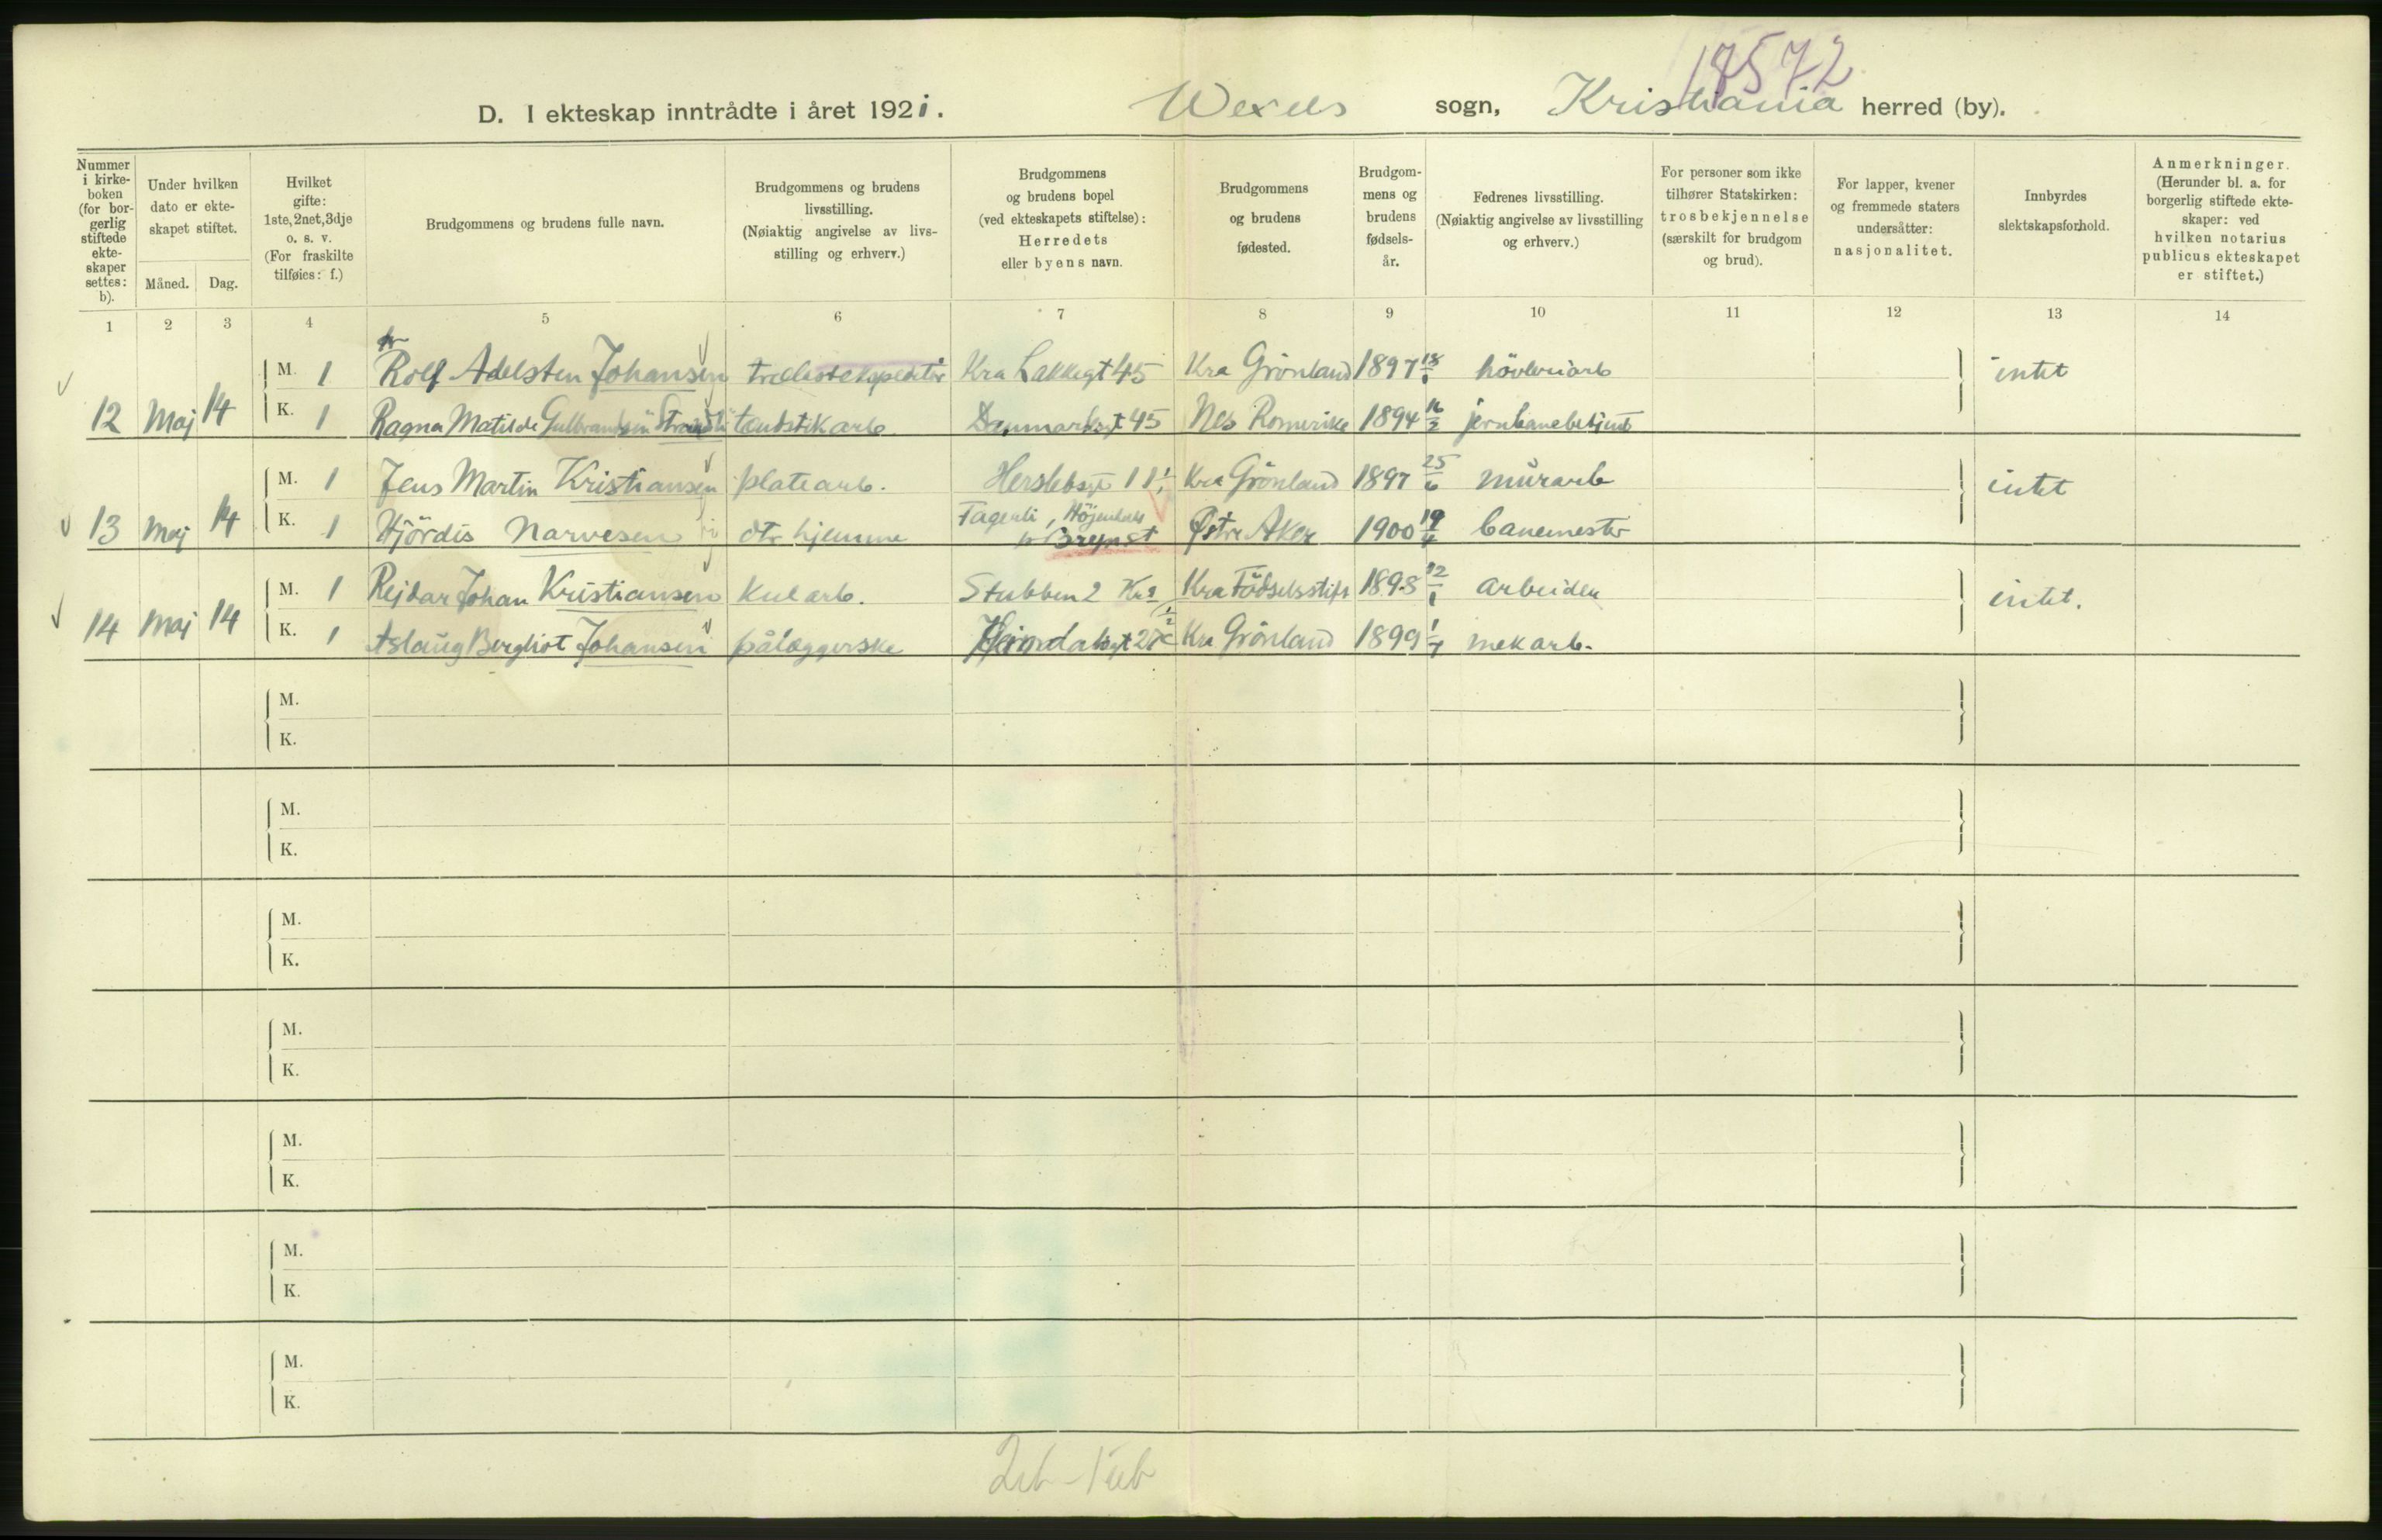 18572
D. I ekteskap inntrådte i året 1921. Wexels sogn, Kristiania herred (by).
Nummer i kirke-boken (for bor-gerlig stiftede ekte-skaper settes: b).
Under hvilken dato er ekte-skapet stiftet.
Måned. Dag.
Hvilket gifte: 1ste, 2net, 3dje o. s. v. (For fraskilte tilføies: f.)
Brudgommens og brudens fulle navn.
Brudgommens og brudens livsstilling. (Nøiaktig angivelse av livs-stilling og erhverv.)
Brudgommens og brudens bopel (ved ekteskapets stiftelse): Herredets eller byens navn.
Brudgommens og brudens fødested.
Brudgom-mens og brudens fødsels-år.
Fedrenes livsstilling. (Nøiaktig angivelse av livsstilling og erhverv.)
For personer som ikke tilhører Statskirken: trosbekjennelse (særskilt for brudgom og brud).
For lapper, kvener og fremmede staters undersåtter: nasjonalitet.
Innbyrdes slektskapsforhold.
Anmerkninger. (Herunder bl. a. for borgerlig stiftede ekte-skaper: ved hvilken notarius publicus ekteskapet er stiftet.)
1 2 3 4 5 6 7 8 9 10 11 12 13 14
M. 1 Rolf Adelsten Johansen Kra Lakkegt 45 Kra Grönland 1897 18/1 hövleriarb intet
12 Maj 14 K. 1 Ragna Matilde Gulbrandsen tendstikarb. Danmarksgt 45 Nes Romerike 1894 16/2 jernbanebetjent
M. 1 Jens Martin Kristiansen platearb. Herslebsgt 11 Kra Grönland 1897 25/6 murarb intet
13 Maj 14 K. 1 Hjördis Narvesen dtr hjemme Fagerli, p Brynst Østre Aker 1900 19/4 banemester
M. 1 Rejdar Johan Kristiansen Kularb. Stubben 2 Kra Kra Födselsstift 1898 12/1 arbeider intet.
14 Maj 14 K. 1 Aslaug Bergliot Johansen pålæggerske Heimdalsgt Kra Grönland 1899 1/7 mekarb.
M.
K.
M.
K.
M.
K.
M.
K.
M.
K.
M.
K.
M.
K.